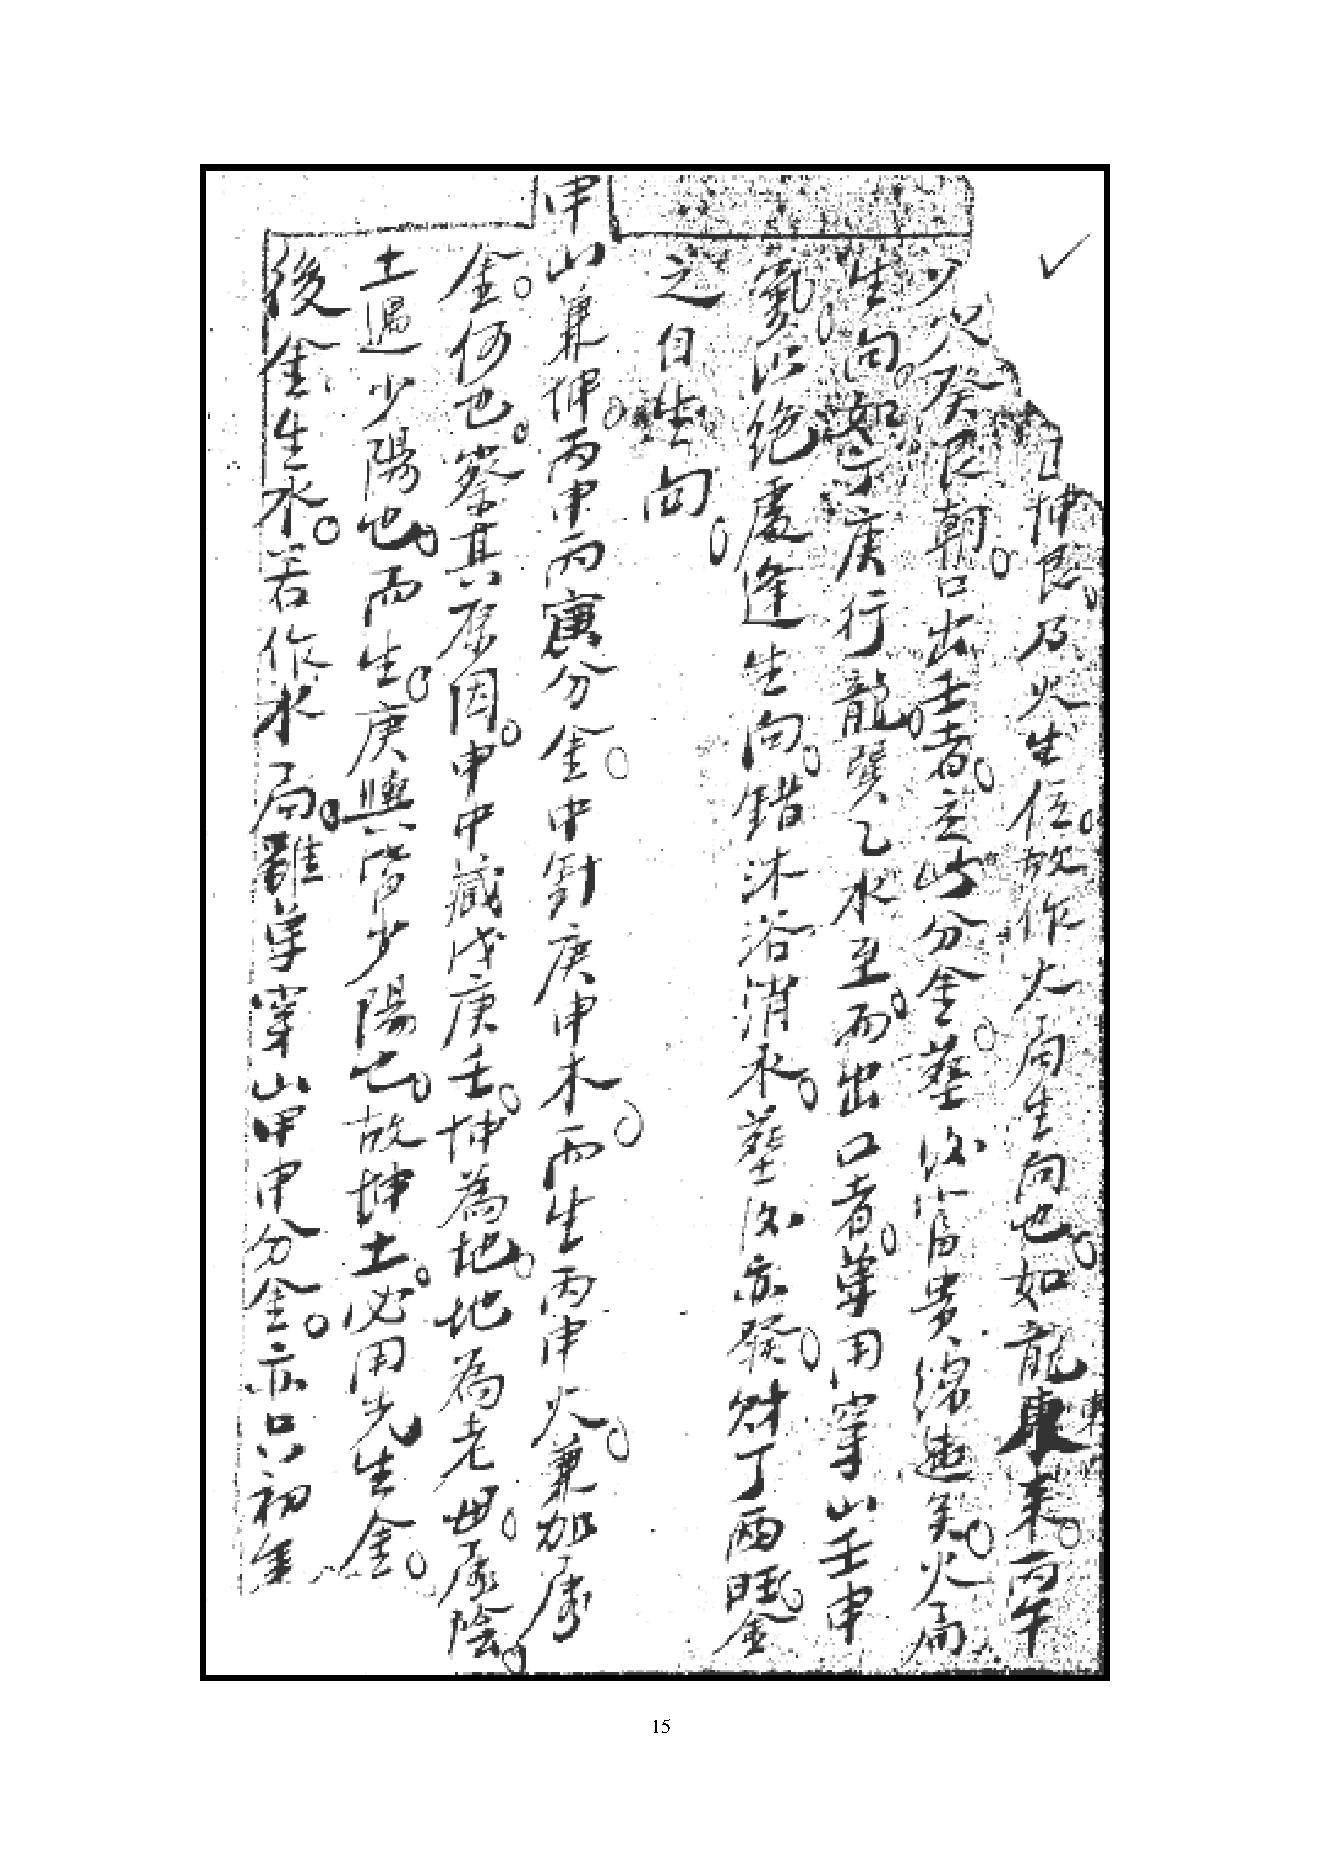 坤艮。乃火生位。故作火局生向也。如龍東来。丙午
癸艮朝。口出壬者。立此分金。塟後富貴綿遠矣。火局
生向。如丁庚行龍。巽乙水至。而出口者。单用穿山壬申
氣。以絶處逢生向。錯沐浴消水。塟後亦發。財丁両旺。金
之自生向。
申山兼坤。丙申丙寅分金。中針庚申木。而生丙申火。兼加属
金。何也。察其原因。申中藏戊庚壬。坤為地。地為老母。属陰。
土過少陽也。而生。庚與皆少陽也。故坤土。必用先生金。
後金生水。若作水局。雖单穿山甲申分金。亦只初年
15